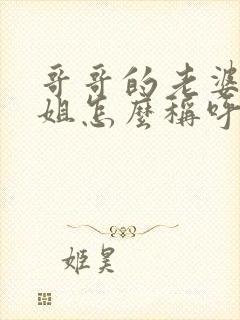 哥哥的老婆
姐怎麼稱呼
姬昊